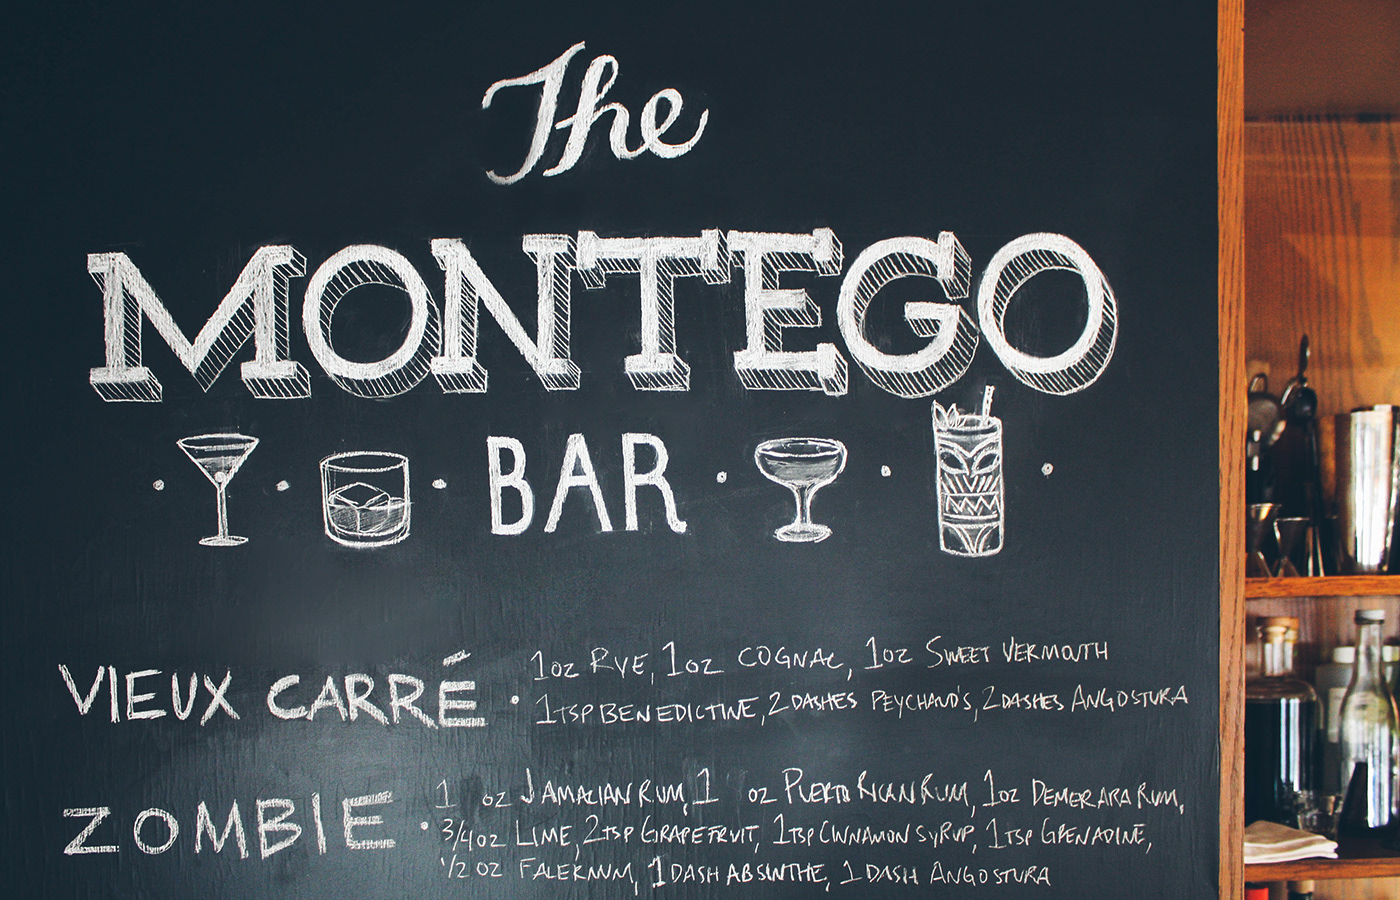 The
MONTEGO
BAR
VIEUX CARRÉ · 1oz RYE, 1oz COGNAC, 1oz SWEET VERMOUTH
1TSP BENEDICTINE, 2 DASHES PEYCHAUD'S, 2 DASHES ANGOSTURA
ZOMBIE · 1 oz JAMAICAN RUM, 1 oz PUERTO RICAN RUM, 1oz DEMERARA RUM,
3/4 oz LIME, 2TSP GRAPEFRUIT, 1TSP CINNAMON SYRUP, 1TSP GRENADINE,
1/2 oz FALERNUM, 1 DASH ABSINTHE, 1 DASH ANGOSTURA